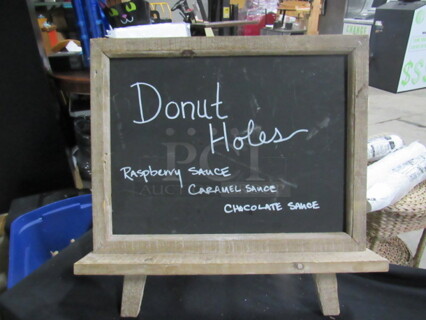 Donut
Holes
Raspberry Sauce
Caramel Sauce
Chocolate Sauce
PCI
AUCTION